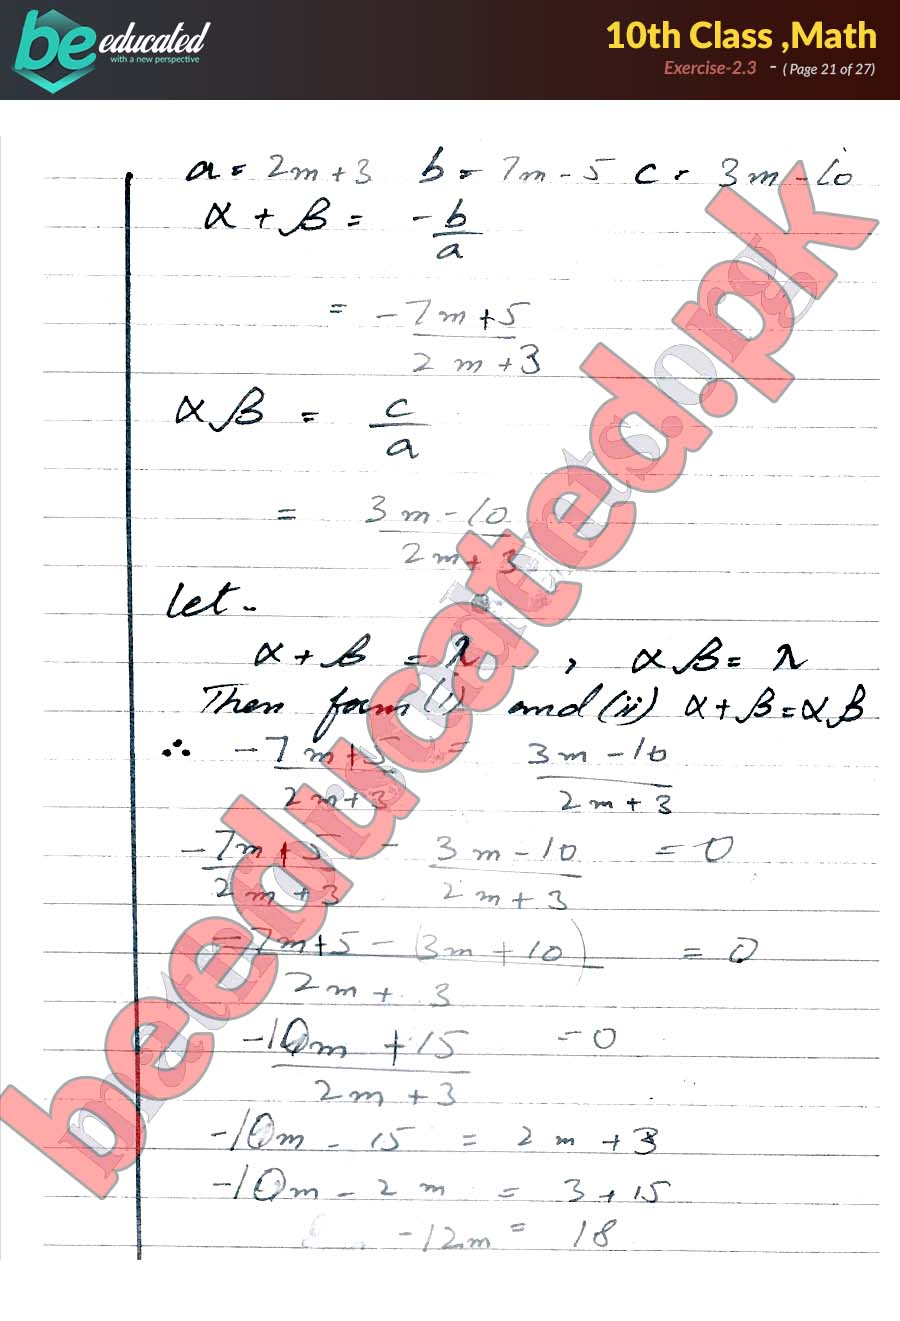 be educated
with a new perspective
10th Class ,Math
Exercise-2.3 - ( Page 21 of 27)
a = 2m+3 b = 7m-5 c = 3m-10
α + β = -b/a
= -7m+5/2m+3
αβ = c/a
= 3m-10/2m+3
Let-
α + β = λ , αβ = λ
Then form (i) and (ii) α+β=αβ
∴ -7m+5/2m+3 = 3m-10/2m+3
-7m+5/2m+3 - 3m-10/2m+3 = 0
-7m+5-(3m+10)/2m+3 = 0
-10m+15/2m+3 = 0
-10m - 15 = 2m + 3
-10m - 2m = 3+15
-12m = 18
beeducated.pk